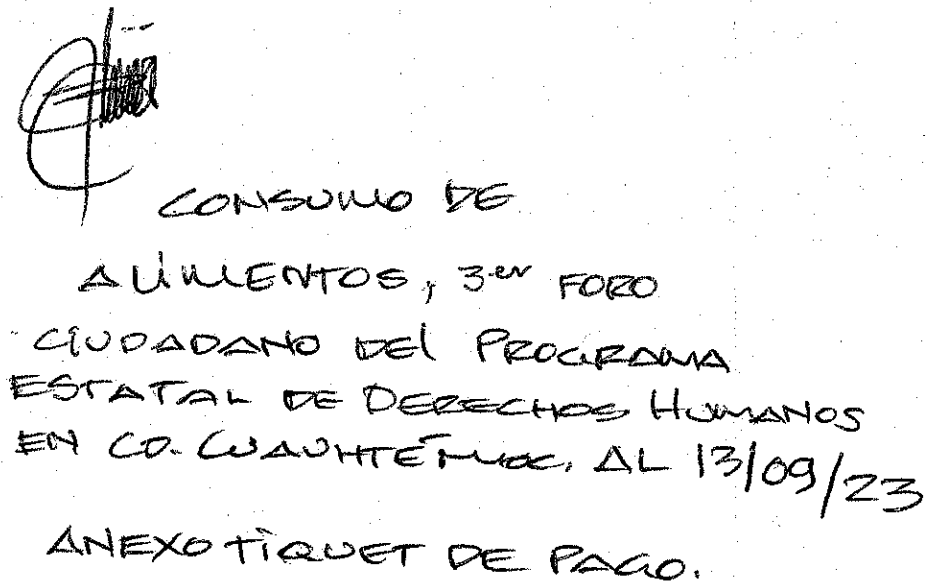 CONSUMO DE
ALIMENTOS, 3er FORO
CIUDADANO DEL PROGRAMA
ESTATAL DE DERECHOS HUMANOS
EN CD. CUAUHTÉMOC, AL 13/09/23
ANEXO TIQUET DE PAGO.